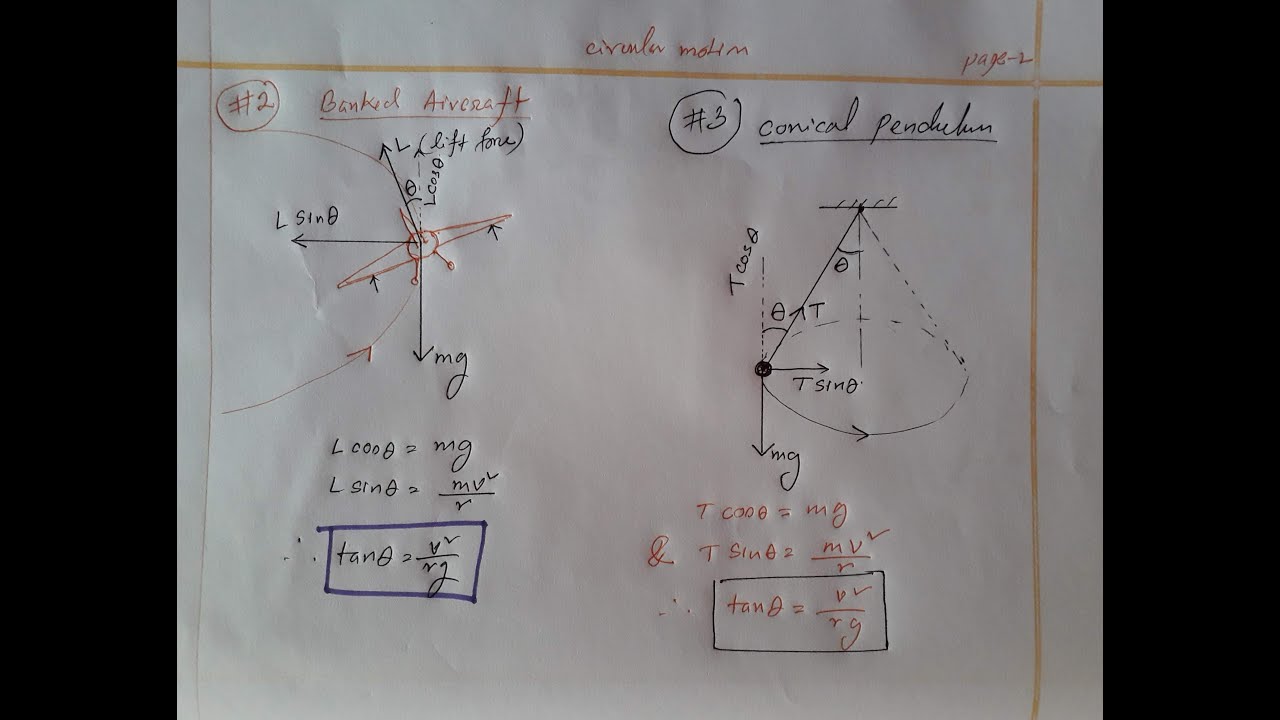 circular motion
page-2
#2 Banked Aircraft
L (lift force)
θ
L cosθ
L sinθ
mg
L cosθ = mg
L sinθ = mv²/r
∴ tanθ = v²/rg
#3 conical pendulum
θ
T cosθ
θ T
T sinθ
mg
T cosθ = mg
& T sinθ = mv²/r
∴ tanθ = v²/rg